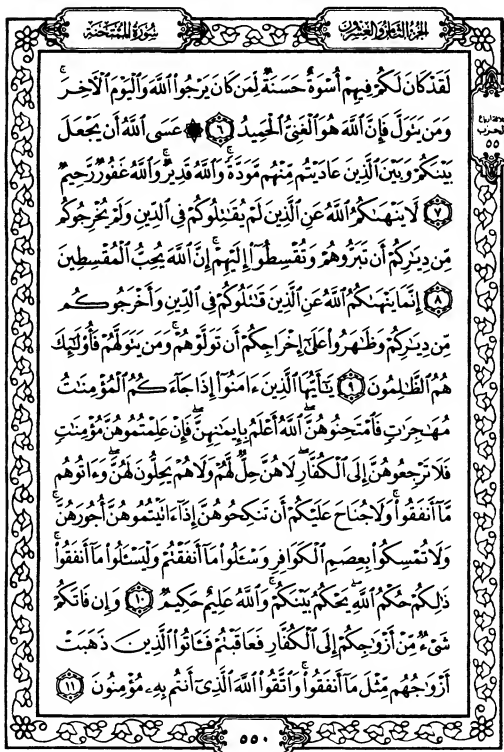 سُورَةُ المُمْتَحَنَةِ
الجُزْءُ الثَّامِنُ وَالعِشْرُونَ
لَقَدْ كَانَ لَكُمْ فِيهِمْ أُسْوَةٌ حَسَنَةٌ لِّمَن كَانَ يَرْجُوا۟ ٱللَّهَ وَٱلْيَوْمَ ٱلْءَاخِرَ ۚ
وَمَن يَتَوَلَّ فَإِنَّ ٱللَّهَ هُوَ ٱلْغَنِىُّ ٱلْحَمِيدُ ٦ ۞ عَسَى ٱللَّهُ أَن يَجْعَلَ
بَيْنَكُمْ وَبَيْنَ ٱلَّذِينَ عَادَيْتُم مِّنْهُم مَّوَدَّةً ۚ وَٱللَّهُ قَدِيرٌ ۚ وَٱللَّهُ غَفُورٌ رَّحِيمٌ
٧ لَّا يَنْهَىٰكُمُ ٱللَّهُ عَنِ ٱلَّذِينَ لَمْ يُقَـٰتِلُوكُمْ فِى ٱلدِّينِ وَلَمْ يُخْرِجُوكُم
مِّن دِيَـٰرِكُمْ أَن تَبَرُّوهُمْ وَتُقْسِطُوٓا۟ إِلَيْهِمْ ۚ إِنَّ ٱللَّهَ يُحِبُّ ٱلْمُقْسِطِينَ
٨ إِنَّمَا يَنْهَىٰكُمُ ٱللَّهُ عَنِ ٱلَّذِينَ قَـٰتَلُوكُمْ فِى ٱلدِّينِ وَأَخْرَجُوكُم
مِّن دِيَـٰرِكُمْ وَظَـٰهَرُوا۟ عَلَىٰٓ إِخْرَاجِكُمْ أَن تَوَلَّوْهُمْ ۚ وَمَن يَتَوَلَّهُمْ فَأُو۟لَـٰٓئِكَ
هُمُ ٱلظَّـٰلِمُونَ ٩ يَـٰٓأَيُّهَا ٱلَّذِينَ ءَامَنُوٓا۟ إِذَا جَآءَكُمُ ٱلْمُؤْمِنَـٰتُ
مُهَـٰجِرَٰتٍ فَٱمْتَحِنُوهُنَّ ۖ ٱللَّهُ أَعْلَمُ بِإِيمَـٰنِهِنَّ ۖ فَإِنْ عَلِمْتُمُوهُنَّ مُؤْمِنَـٰتٍ
فَلَا تَرْجِعُوهُنَّ إِلَى ٱلْكُفَّارِ ۖ لَا هُنَّ حِلٌّ لَّهُمْ وَلَا هُمْ يَحِلُّونَ لَهُنَّ ۖ وَءَاتُوهُم
مَّآ أَنفَقُوا۟ ۚ وَلَا جُنَاحَ عَلَيْكُمْ أَن تَنكِحُوهُنَّ إِذَآ ءَاتَيْتُمُوهُنَّ أُجُورَهُنَّ ۚ
وَلَا تُمْسِكُوا۟ بِعِصَمِ ٱلْكَوَافِرِ وَسْـَٔلُوا۟ مَآ أَنفَقْتُمْ وَلْيَسْـَٔلُوا۟ مَآ أَنفَقُوا۟ ۚ
ذَٰلِكُمْ حُكْمُ ٱللَّهِ ۖ يَحْكُمُ بَيْنَكُمْ ۚ وَٱللَّهُ عَلِيمٌ حَكِيمٌ ١٠ وَإِن فَاتَكُمْ
شَىْءٌ مِّنْ أَزْوَٰجِكُمْ إِلَى ٱلْكُفَّارِ فَعَاقَبْتُمْ فَـَٔاتُوا۟ ٱلَّذِينَ ذَهَبَتْ
أَزْوَٰجُهُم مِّثْلَ مَآ أَنفَقُوا۟ ۚ وَٱتَّقُوا۟ ٱللَّهَ ٱلَّذِىٓ أَنتُم بِهِۦ مُؤْمِنُونَ ١١
الحزب
٥٥
٥٥٠